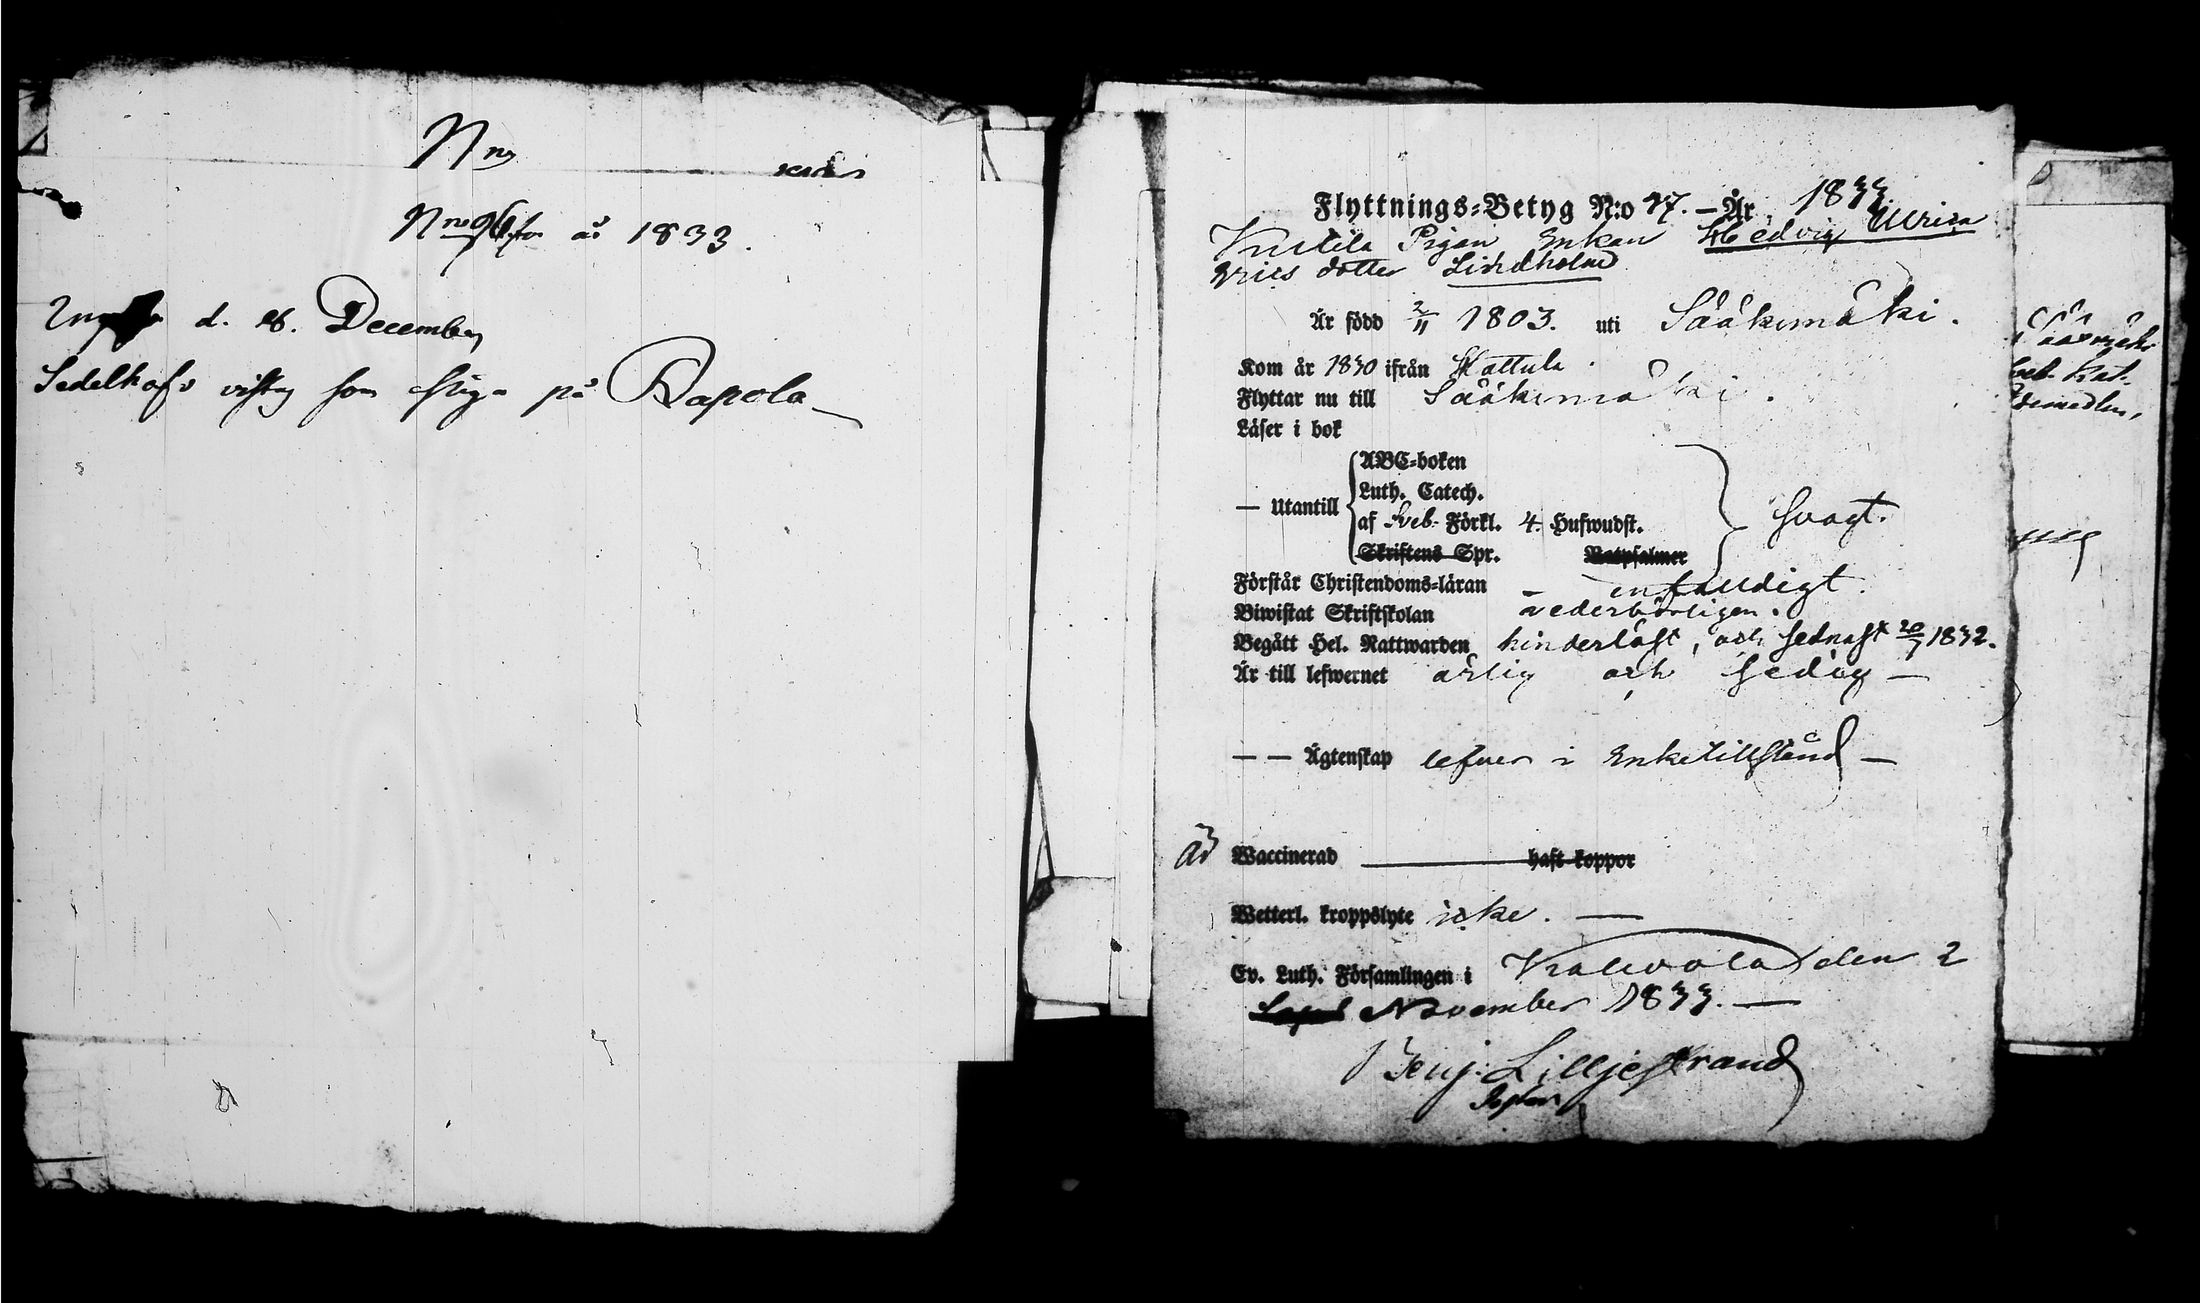 Nro
Nro 96 för år 1833.
d. 28. December
Sedelhafv vistas som piga på Rapola
Flyttnings-Betyg N:o 47. — År 1833.
Pigan Enkan Hedvig Ulrica
Erics dotter Lindholm
Är född 2/11 1803. uti Sääksmäki.
Kom år 1830 ifrån Hattula.
Flyttar nu till Sääksmäki.
Läser i bok
— Utantill
ABC-boken
Luth. Catech.
af Sveb. Förkl. 4. Hufwudst.
Skriftens Spr. Botpsalmer
svagt.
Förstår Christendoms-läran — enfaldigt.
Biwistat Skriftskolan vederbörligen.
Begått Hel. Nattwarden hinderlöst, och sednast 20/7 1832.
Är till lefwernet ärlig och sedig —
— — Ägtenskap lefver i Enketillstånd —
Är Waccinerad haft koppor
Wetterl. kroppslyte icke. —
Ev. Luth. Församlingen i Kalvola den 2
November 1833. —
Benj. Lilljestrand
Sääxmäki
Sveb. Kat.